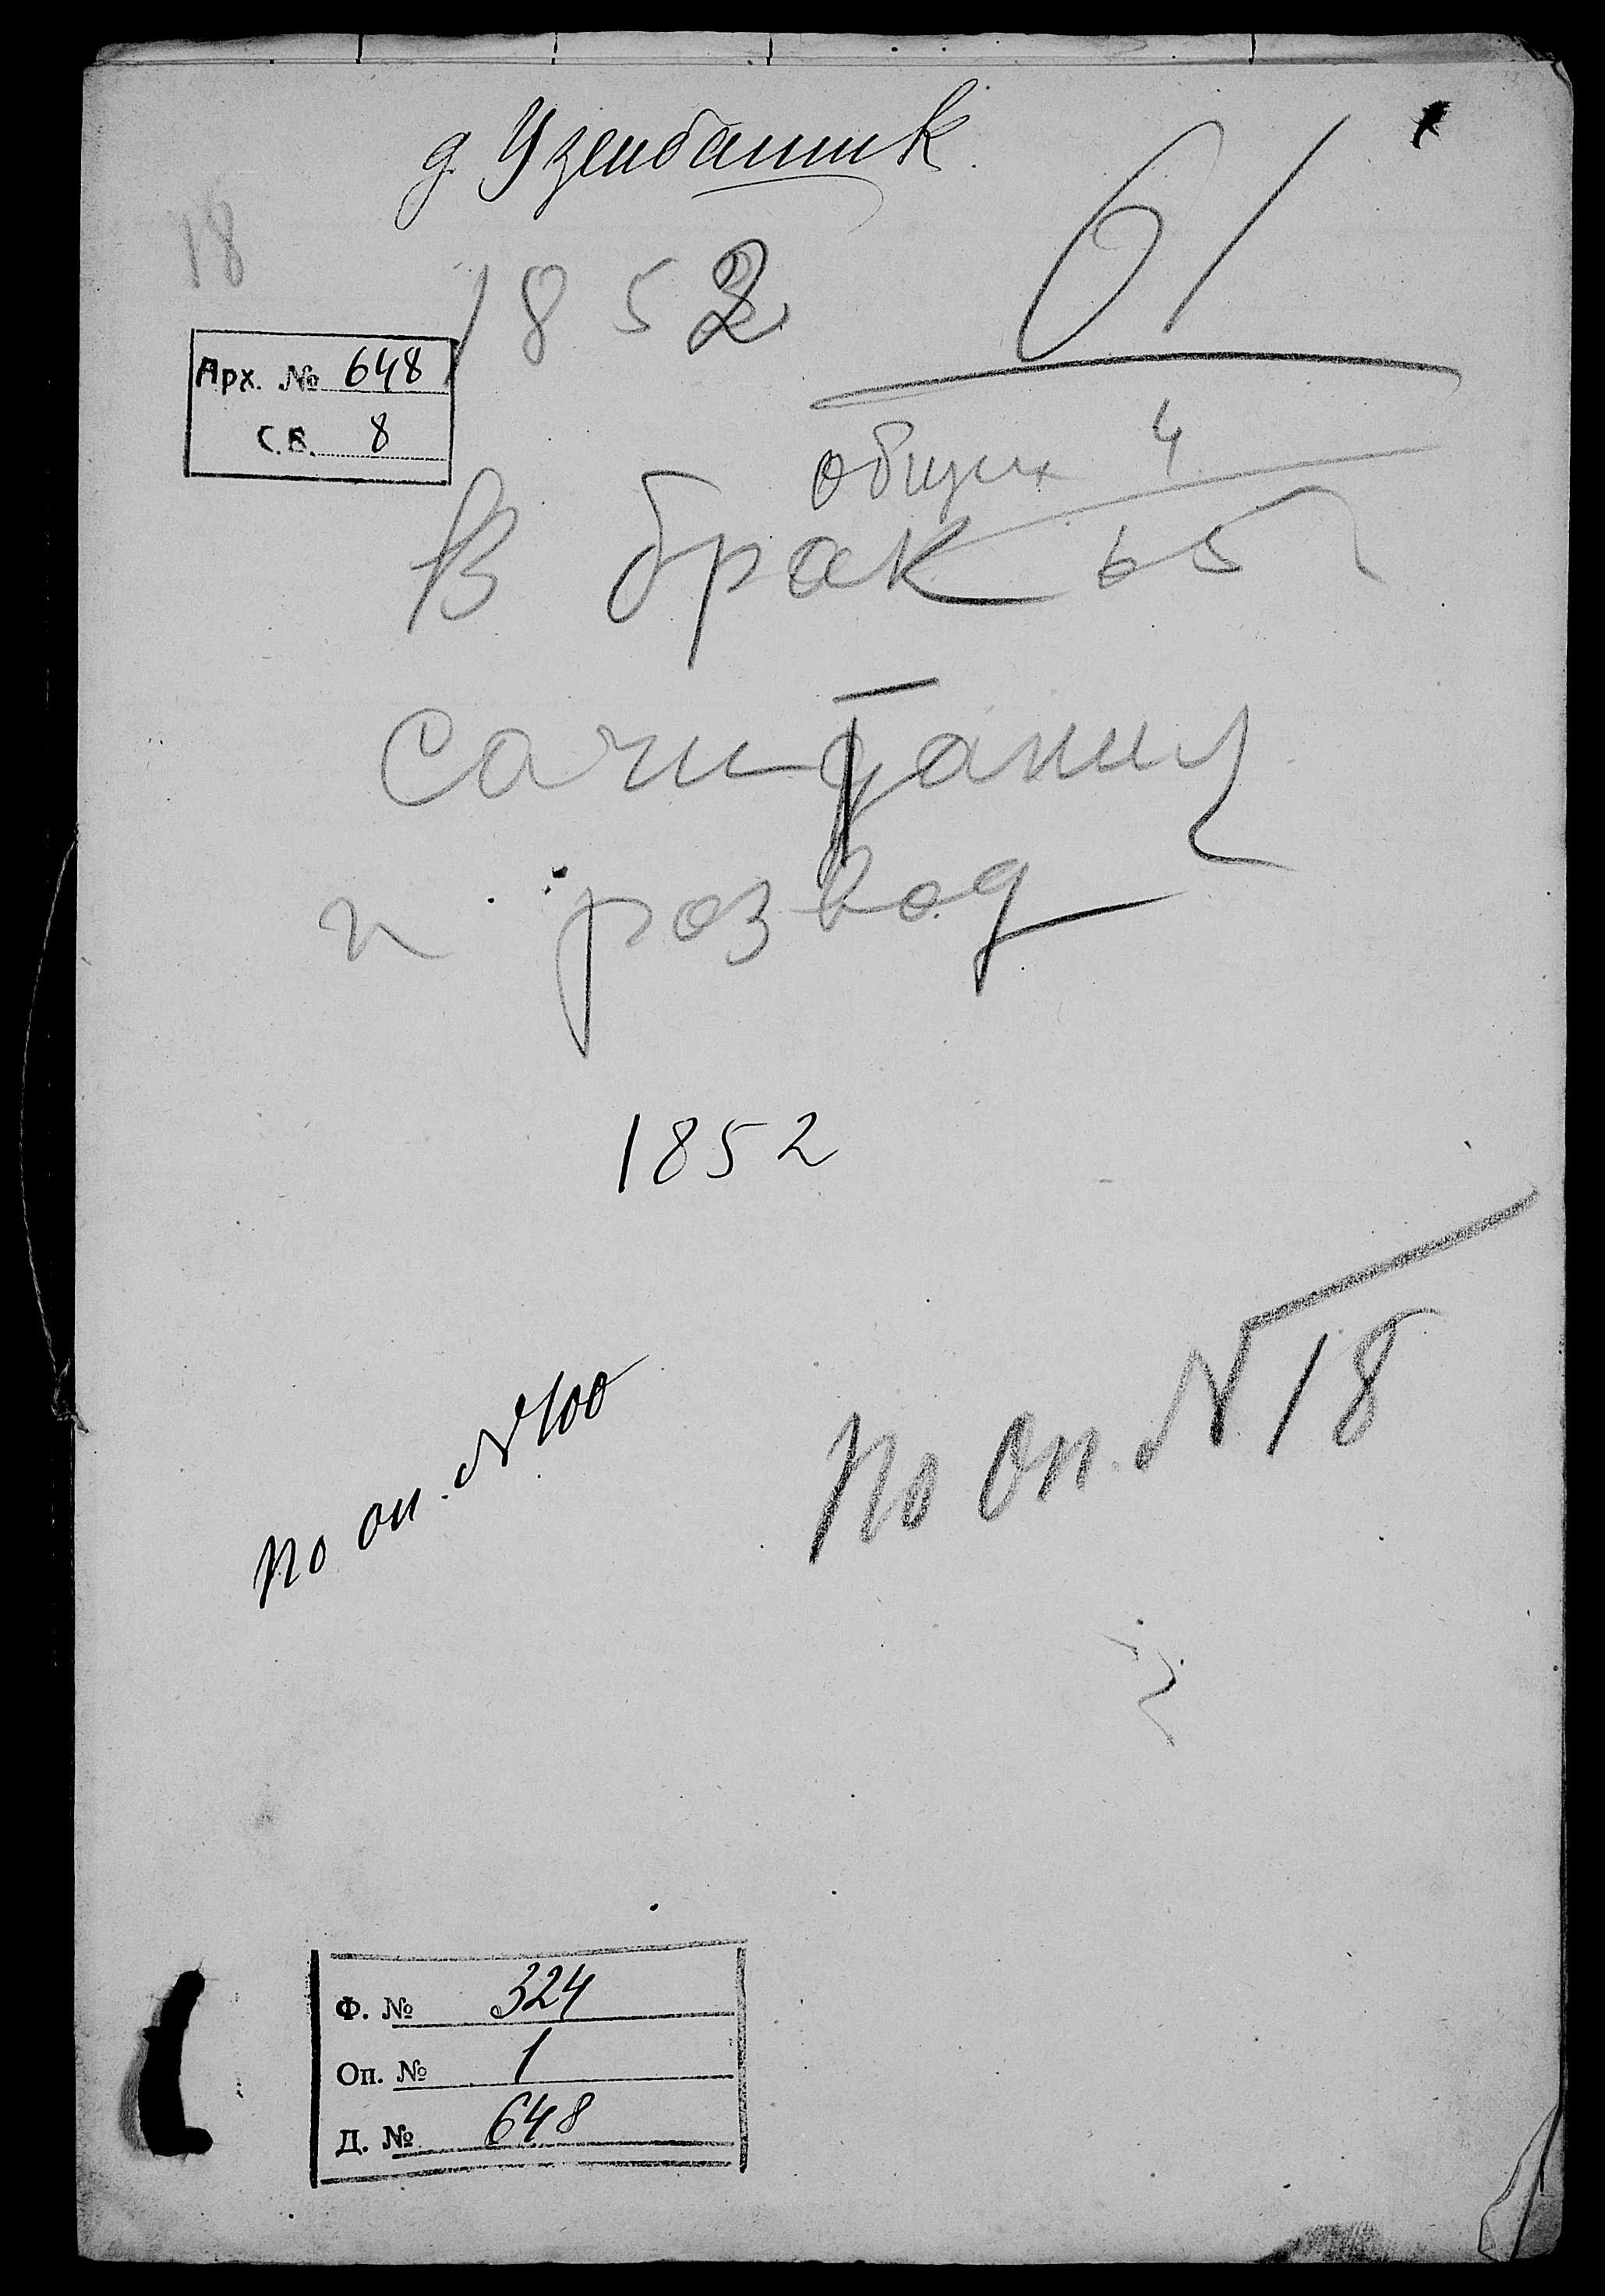 д. Узенбашик.
18
61
1852
Арх. № 648
С.В. 8
общих 4
65
В брак
сочитания
и розвод
1852
По оп. № 100
По оп. № 18
Ф. № 324
Оп. № 1
Д. № 648